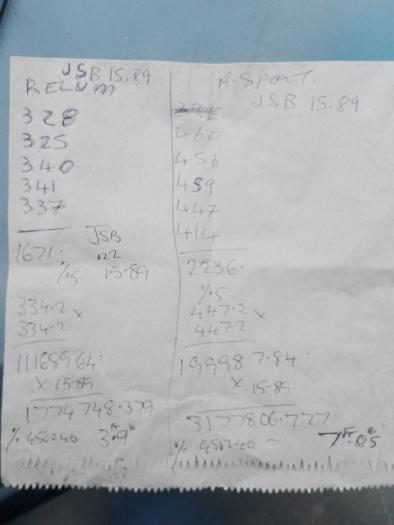 JSB 15.89
RELUM
328
325
340
341
337
1671.
JSB
.22
15.89
%5
334.2 x
334.2
111689.64
x 15.89
1774748.379
% 450240 3.9
A.Sport.
JSB 15.89
460
456
459
447
414
2236.
%5
447.2 x
447.2
199987.84
x 15.89.
3177806.777
% 450240 - 7Ft.05